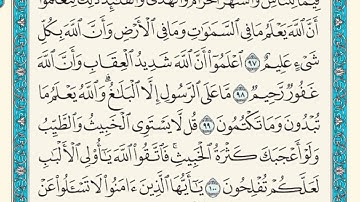 قِيَٰمًا لِّلنَّاسِ وَٱلشَّهْرَ ٱلْحَرَامَ وَٱلْهَدْىَ وَٱلْقَلَٰٓئِدَ ذَٰلِكَ لِتَعْلَمُوٓا۟
أَنَّ ٱللَّهَ يَعْلَمُ مَا فِى ٱلسَّمَٰوَٰتِ وَمَا فِى ٱلْأَرْضِ وَأَنَّ ٱللَّهَ بِكُلِّ
شَىْءٍ عَلِيمٌ ٩٧ ٱعْلَمُوٓا۟ أَنَّ ٱللَّهَ شَدِيدُ ٱلْعِقَابِ وَأَنَّ ٱللَّهَ
غَفُورٌ رَّحِيمٌ ٩٨ مَّا عَلَى ٱلرَّسُولِ إِلَّا ٱلْبَلَٰغُ ۗ وَٱللَّهُ يَعْلَمُ مَا
تُبْدُونَ وَمَا تَكْتُمُونَ ٩٩ قُل لَّا يَسْتَوِى ٱلْخَبِيثُ وَٱلطَّيِّبُ
وَلَوْ أَعْجَبَكَ كَثْرَةُ ٱلْخَبِيثِ ۚ فَٱتَّقُوا۟ ٱللَّهَ يَٰٓأُو۟لِى ٱلْأَلْبَٰبِ
لَعَلَّكُمْ تُفْلِحُونَ ١٠٠ يَٰٓأَيُّهَا ٱلَّذِينَ ءَامَنُوا۟ لَا تَسْـَٔلُوا۟ عَنْ